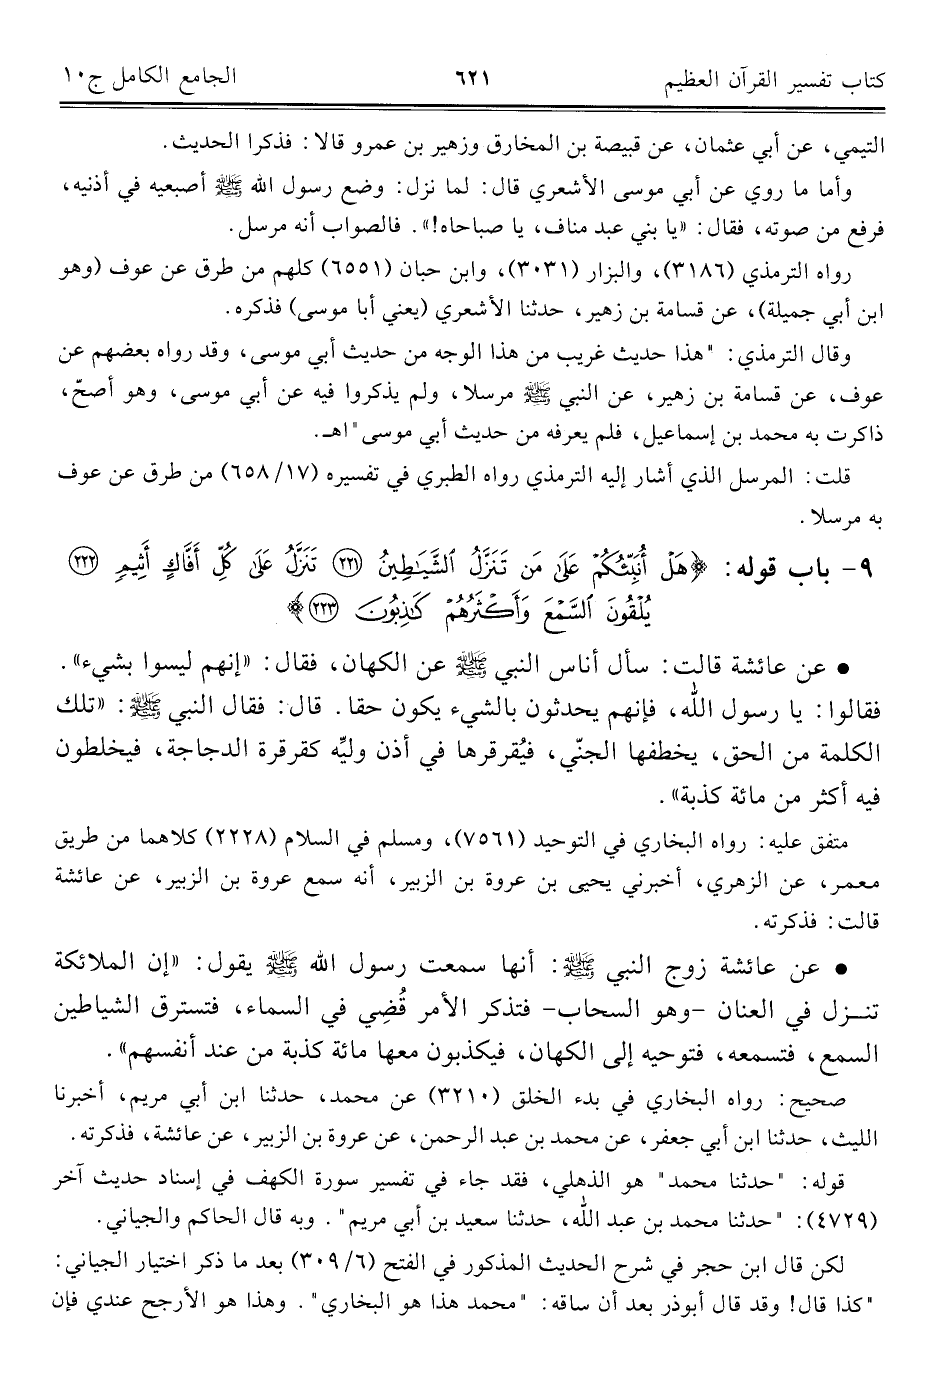 كتاب تفسير القرآن العظيم ٦٢١ الجامع الكامل ج١٠
التيمي، عن أبي عثمان، عن قبيصة بن المخارق وزهير بن عمرو قالا: فذكرا الحديث.
وأما ما روي عن أبي موسى الأشعري قال: لما نزل: وضع رسول الله ﷺ أصبعيه في أذنيه،
فرفع من صوته، فقال: «يا بني عبد مناف، يا صباحاه!». فالصواب أنه مرسل.
رواه الترمذي (٣١٨٦)، والبزار (٣٠٣١)، وابن حبان (٦٥٥١) كلهم من طرق عن عوف (وهو
ابن أبي جميلة)، عن قسامة بن زهير، حدثنا الأشعري (يعني أبا موسى) فذكره.
وقال الترمذي: "هذا حديث غريب من هذا الوجه من حديث أبي موسى، وقد رواه بعضهم عن
عوف، عن قسامة بن زهير، عن النبي ﷺ مرسلا، ولم يذكروا فيه عن أبي موسى، وهو أصحّ،
ذاكرت به محمد بن إسماعيل، فلم يعرفه من حديث أبي موسى" اهـ.
قلت: المرسل الذي أشار إليه الترمذي رواه الطبري في تفسيره (١٧/٦٥٨) من طرق عن عوف
به مرسلا.
٩- باب قوله: ﴿هَلْ أُنَبِّئُكُمْ عَلَىٰ مَن تَنَزَّلُ ٱلشَّيَـٰطِينُ ٢٢١ تَنَزَّلُ عَلَىٰ كُلِّ أَفَّاكٍ أَثِيمٍ ٢٢٢
يُلْقُونَ ٱلسَّمْعَ وَأَكْثَرُهُمْ كَـٰذِبُونَ ٢٢٣﴾
• عن عائشة قالت: سأل أناس النبي ﷺ عن الكهان، فقال: «إنهم ليسوا بشيء».
فقالوا: يا رسول الله، فإنهم يحدثون بالشيء يكون حقا. قال: فقال النبي ﷺ: «تلك
الكلمة من الحق، يخطفها الجنّي، فيُقرقرها في أذن وليِّه كقرقرة الدجاجة، فيخلطون
فيه أكثر من مائة كذبة».
متفق عليه: رواه البخاري في التوحيد (٧٥٦١)، ومسلم في السلام (٢٢٢٨) كلاهما من طريق
معمر، عن الزهري، أخبرني يحيى بن عروة بن الزبير، أنه سمع عروة بن الزبير، عن عائشة
قالت: فذكرته.
• عن عائشة زوج النبي ﷺ: أنها سمعت رسول الله ﷺ يقول: «إن الملائكة
تنـزل في العنان -وهو السحاب- فتذكر الأمر قُضِي في السماء، فتسترق الشياطين
السمع، فتسمعه، فتوحيه إلى الكهان، فيكذبون معها مائة كذبة من عند أنفسهم».
صحيح: رواه البخاري في بدء الخلق (٣٢١٠) عن محمد، حدثنا ابن أبي مريم، أخبرنا
الليث، حدثنا ابن أبي جعفر، عن محمد بن عبد الرحمن، عن عروة بن الزبير، عن عائشة، فذكرته.
قوله: "حدثنا محمد" هو الذهلي، فقد جاء في تفسير سورة الكهف في إسناد حديث آخر
(٤٧٢٩): "حدثنا محمد بن عبد الله، حدثنا سعيد بن أبي مريم". وبه قال الحاكم والجياني.
لكن قال ابن حجر في شرح الحديث المذكور في الفتح (٦/٣٠٩) بعد ما ذكر اختيار الجياني:
"كذا قال! وقد قال أبوذر بعد أن ساقه: "محمد هذا هو البخاري". وهذا هو الأرجح عندي فإن